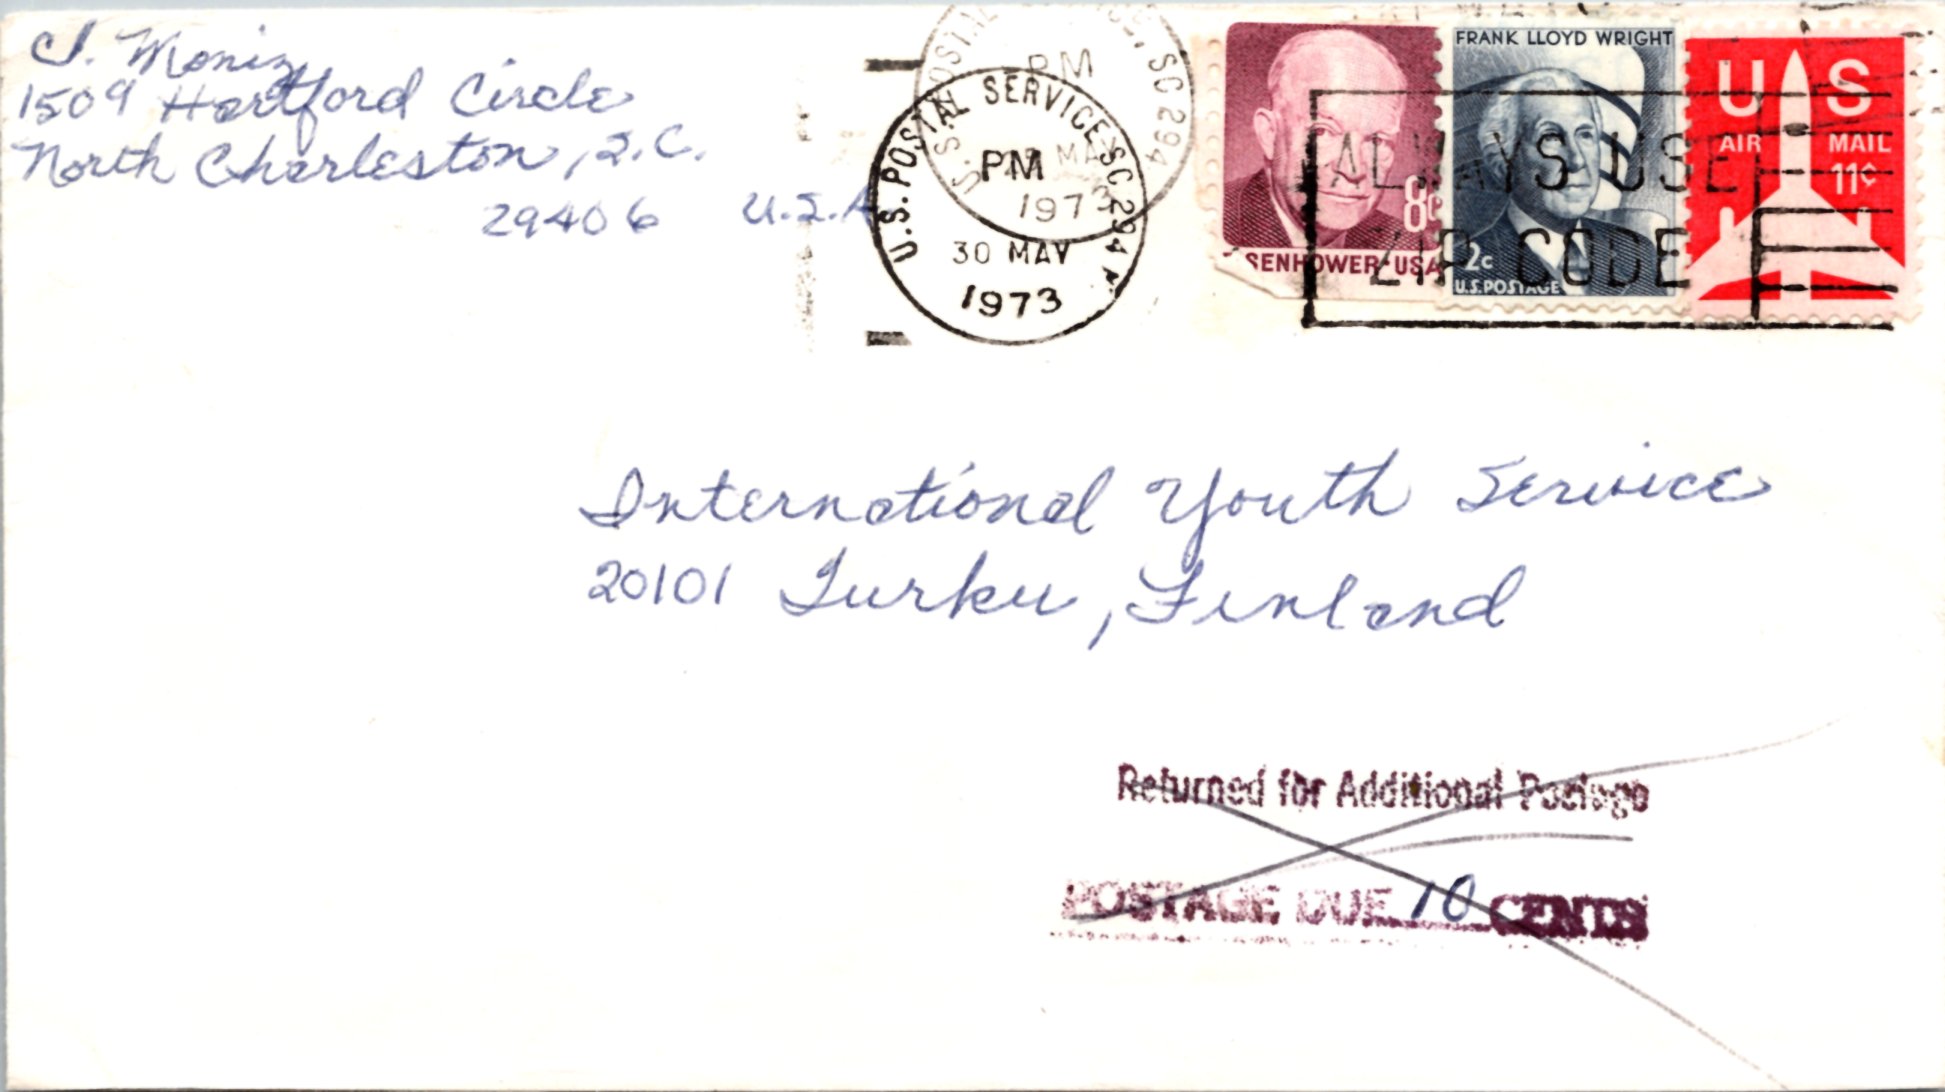 J. Moniz
1509 Hartford Circle
North Charleston, S.C.
29406 U.S.A
U.S. POSTAL SERVICE SC 294
PM
30 MAY
1973
PM
MAY
197
SC 294
SENHOWER·USA
8c
FRANK LLOYD WRIGHT
2c
U.S. POSTAGE
US
AIR MAIL
11¢
ALWAYS USE
ZIP CODE
International Youth Service
20101 Turku, Finland
Returned for Additional Postage
POSTAGE DUE 10 CENTS